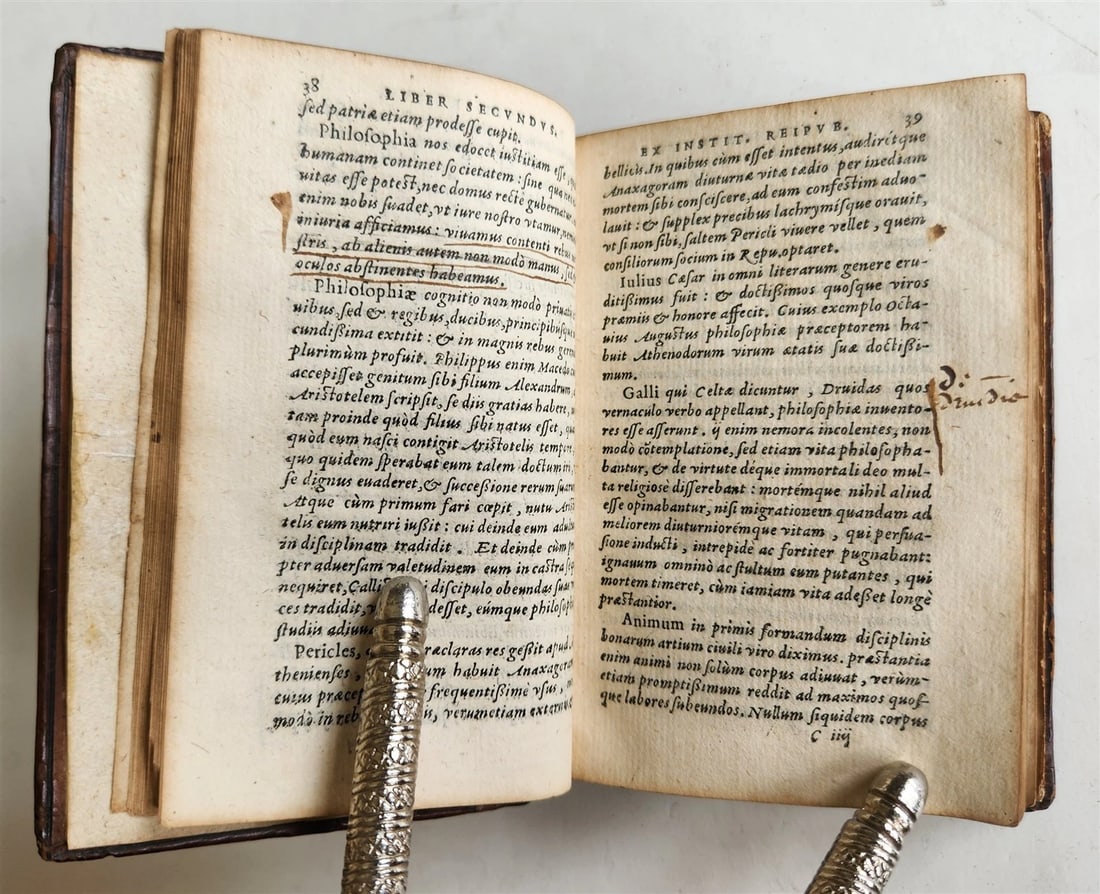 38
LIBER SECVNDVS.
sed patriæ etiam prodesse cupit.
Philosophia nos edocet iustitiam esse, 
humanam continet societatem: sine qua
uitas esse potest, nec domus rectè gubernatur,
enim nobis suadet, vt iure nostro vtamur,
iniuria afficiamus: viuamus contenti rebus
stris, ab alienis autem non modò manus, sed
oculos abstinentes habeamus.
Philosophiæ cognitio non modò priuatis
uibus, sed & regibus, ducibus, principibusque
cundißima extitit: & in magnis rebus
plurimùm profuit. Philippus enim Macedo
accepisset genitum sibi filium Alexandrum,
Aristotelem scripsit, se diis gratias habere,
tam proinde quòd filius sibi natus esset,
quòd eum nasci contigit Aristotelis tempore,
quo quidem sperabat eum talem doctum
se dignus euaderet, & succeßione rerum
Atque cùm primum fari cœpit, nutu
telis eum nutriri iußit: cui deinde eum
in disciplinam tradidit. Et deinde cùm
pter aduersam valetudinem eum in castra
nequiret, discipulo obeundas suas
ces tradidit, desset, eúmque philosoph
studiis adiuua
Pericles, ræclaras res gessit apud
thenienses, um habuit Anaxagoram
cuius præcep frequentißimè vsus,
modò in reb , verumetiam
EX INSTIT. REIPVB.
39
bellicis. In quibus cùm esset intentus, audirétque
Anaxagoram diuturnæ vitæ tædio per inediam
mortem sibi consciscere, ad eum confestim aduo-
lauit: & supplex precibus lachrymisque orauit,
vt si non sibi, saltem Pericli viuere vellet, quem
consiliorum socium in Repu. optaret.
Iulius Cæsar in omni literarum genere eru-
ditißimus fuit: & doctißimos quosque viros
præmiis & honore affecit. Cuius exemplo Octa-
uius Augustus philosophiæ præceptorem ha-
buit Athenodorum virum ætatis suæ doctißi-
mum.
Galli qui Celtæ dicuntur, Druidas quos
vernaculo verbo appellant, philosophiæ inuento-
res esse asserunt. ij enim nemora incolentes, non
modò cõtemplatione, sed etiam vita philosopha-
bantur, & de virtute déque immortali deo mul-
ta religiosè differebant: mortémque nihil aliud
esse opinabantur, nisi migrationem quandam ad
meliorem diuturniorémque vitam, qui persua-
sione inducti, intrepidè ac fortiter pugnabant:
ignauum omninò ac stultum eum putantes, qui
mortem timeret, cùm iamiam vita adeßet longè
præstantior.
Animum in primis formandum disciplinis
bonarum artium ciuili viro diximus. præstantia
enim animi non solùm corpus adiuuat, verùm-
etiam promptißimum reddit ad maximos quos-
que labores subeundos. Nullum siquidem corpus
C iiij